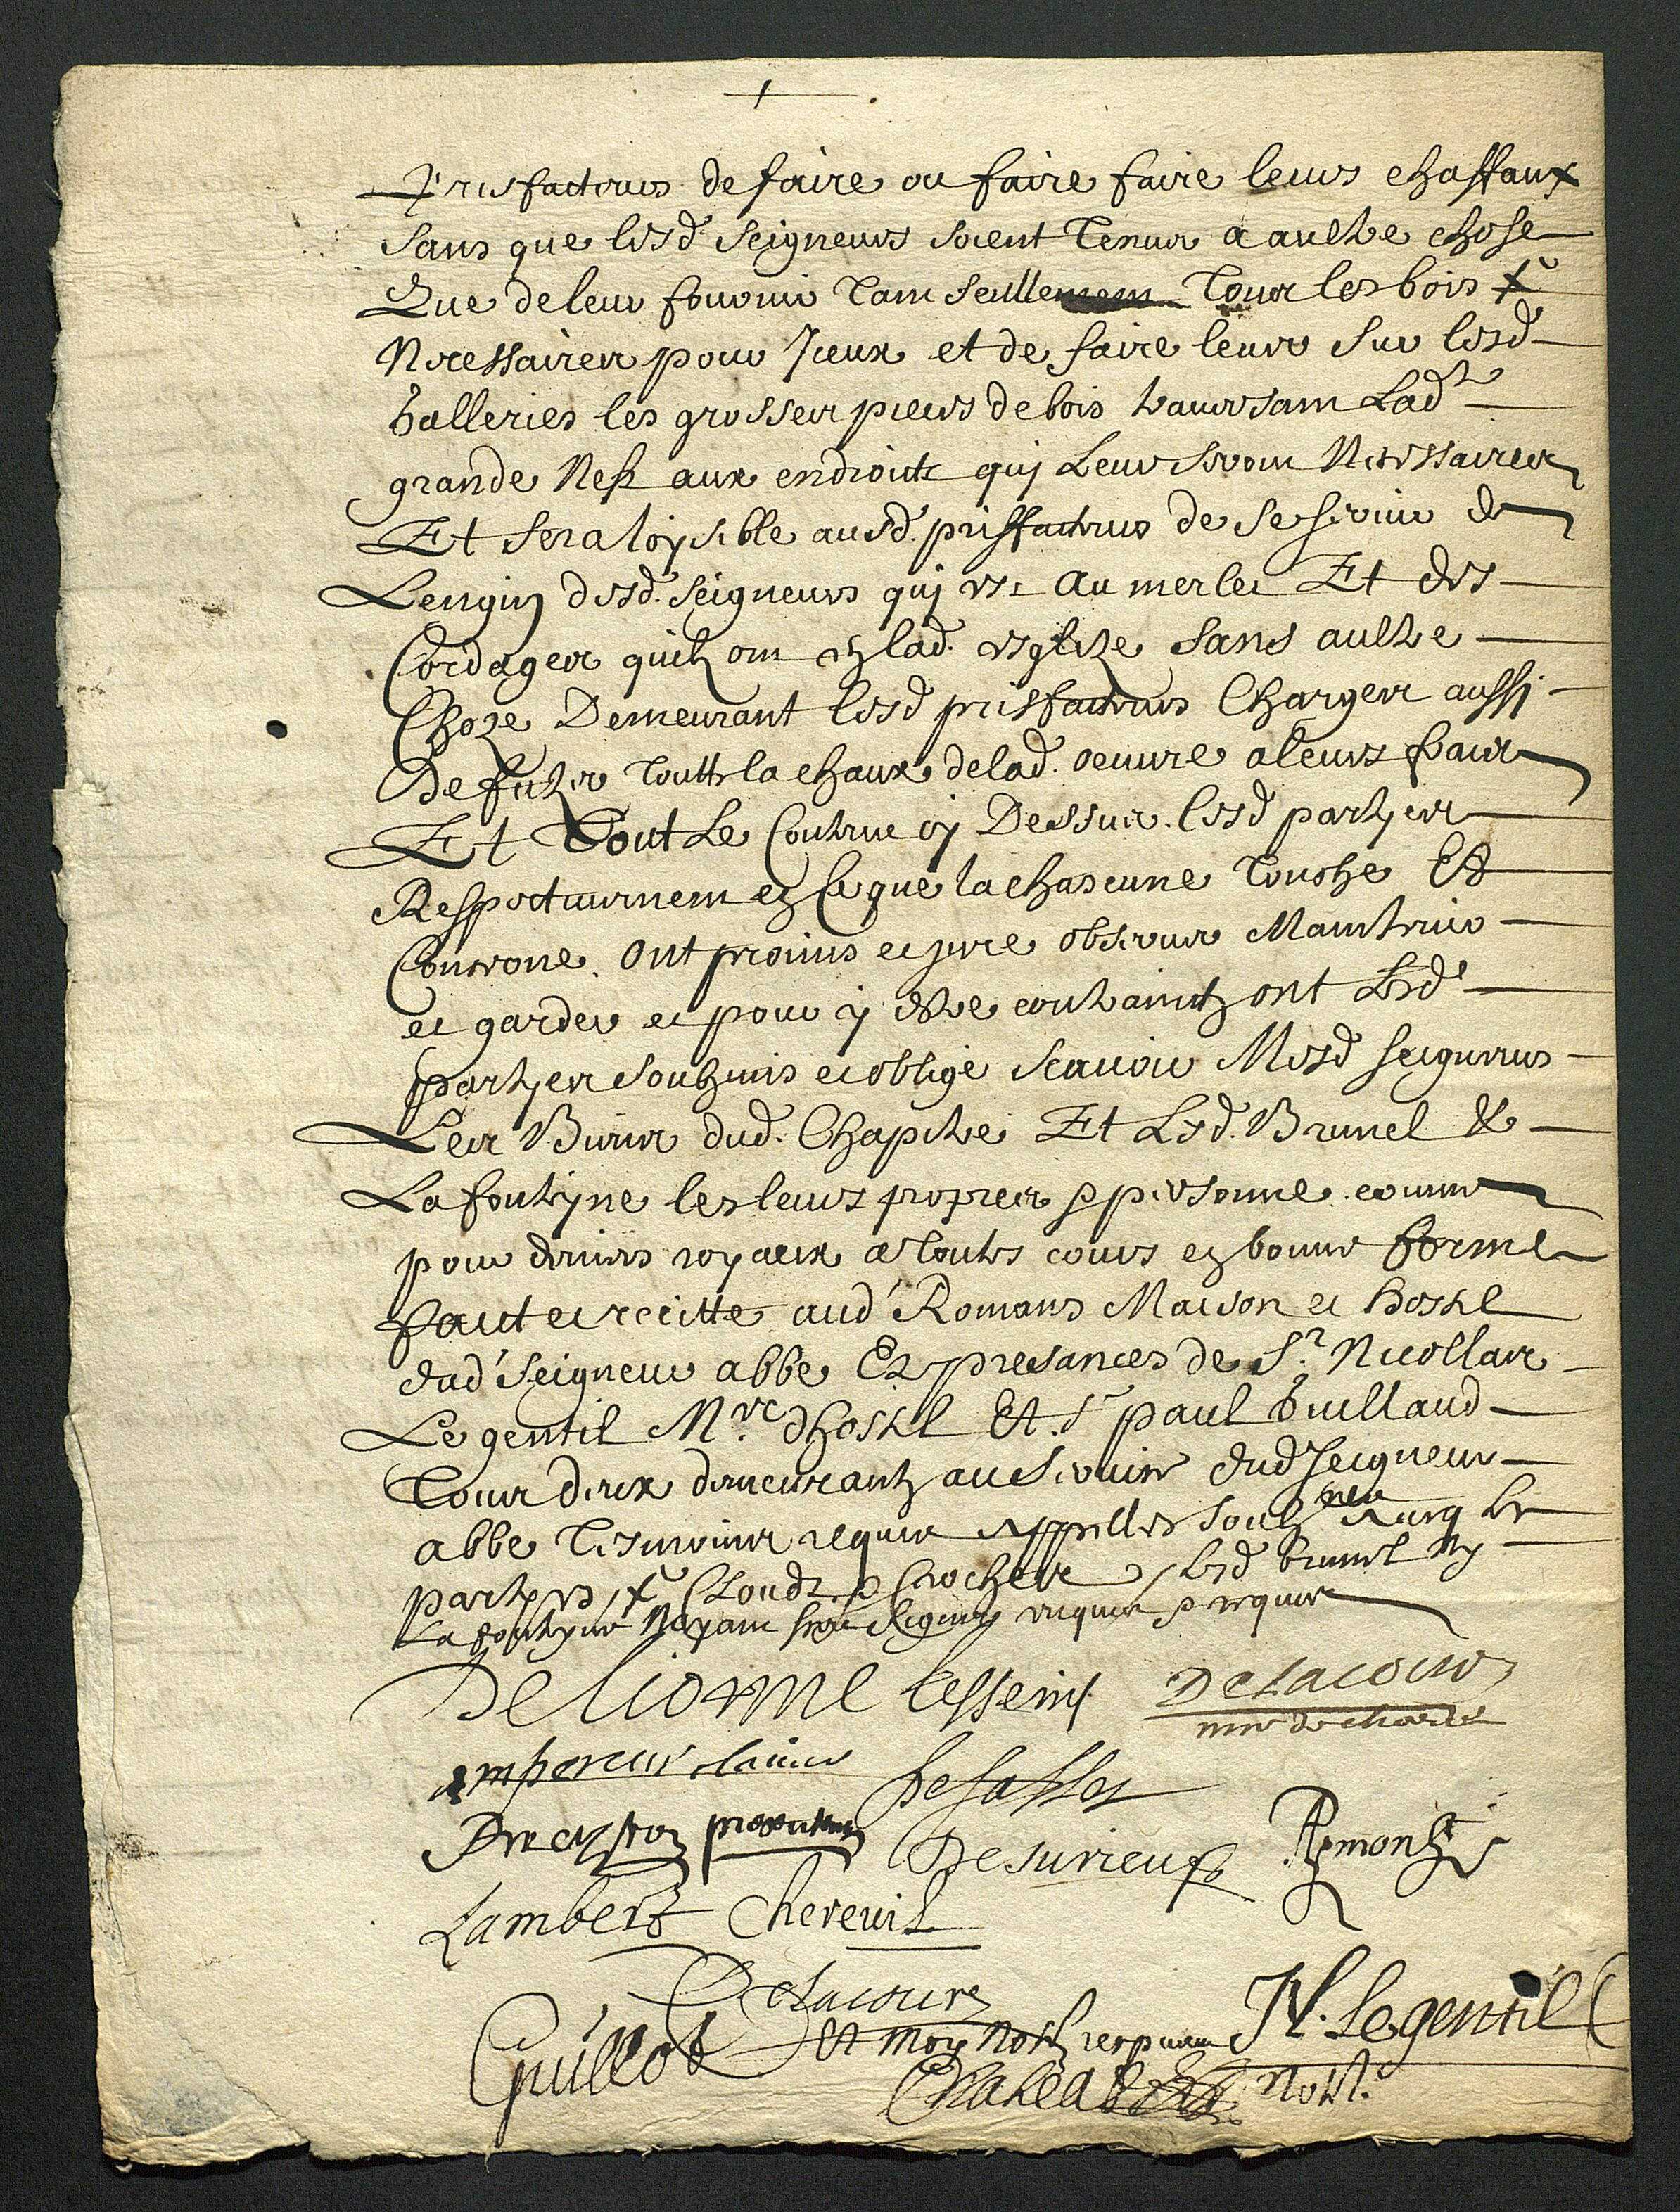 prisfacteurs de faire ou faire faire leurs chaffaux
sans que lesd. seigneurs soient tenus a aultre chose
Que de leur fournir tant seullement tous les bois +
Necessaires pour iceux et de faire leuer sur lesd.
Galleries les grosses pieces de bois trauersant Lad.te
grande Nef aux endroits quj Leur seront Necessaires
Et sera loysible ausd. prisfacteurs de se seruir de
Lengin desd. seigneurs quj est au merle Et des
Cordages quilz ont en lad. esglize sans aultre
Choze Demeurant lesd. prisfacteurs Charges aussi
De fuzer toutte la chaux de lad. oeuure a leurs frais
Et Tout Le Contenu cy Dessus lesd. partyes
Respectiuement en Ce que la chascune Touche Et
Conserne ont promis et juré obseruer Maintenir
et garder et pour y estre contraintz ont Lesd.
partyes soubzmis et obligé scauoir Mesd. seigneurs
Les Biens dud. Chapitre Et Lesd. Brunel &
La fonteyne les leurs propres & personne comme
pour deniers royaux a toutes cours en bonne forme
fait et recitté aud. Romans Maison et hostel
dud. seigneur abbe Ez presances de Sr. Nicollas
Le gentil Mre. dhostel Et Sr paul Guillaud
Tous deux demeurantz au seruice dud. seigneur
abbe Tesmoins requis appelles soubz.nes Auec les
partyes + Claude Crochere lesd. brunel Ny
La fonteyne Nayant sceu signer enquis & requis
De Lionne Lesseins Delacour
mre de choeur
empereur clauier de sasses
procureur Desurieux Rymon
Lambert Chereuil
Delacour
Guillot Et Moy Nore recepuant N. Le gentil
Nore.